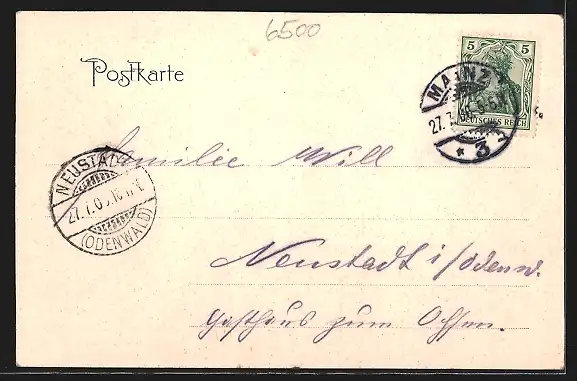 6500
Postkarte
5 5
DEUTSCHES REICH
MAINZ
27.7.05
* 3
Familie Will
NEUSTADT
27.7.05
(ODENWALD)
Neustadt i/Odenw.
Gasthaus zum Ochsen.